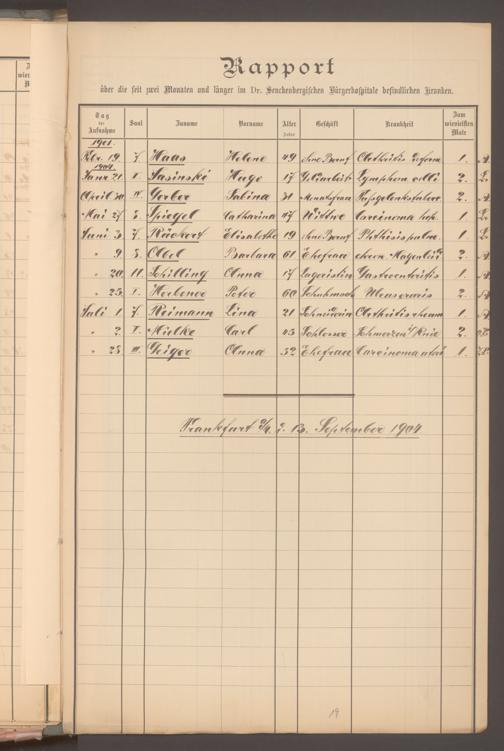 Rapport
über die seit zwei Monaten und länger im Dr. Senckenbergischen Bürgerhospitale befindlichen Kranken.
Tag der Aufnahme Saal Zuname Vorname Alter Jahre Geschäft Krankheit Zum wievielten Male
1901.
Fbr. 19. 7. Haas Helene 49 ohne Beruf Arthritis deform 1.
1904.
Janr. 21. Sasinski Hugo 17 Lymphom colli 2.
April 30. IV. Gerber Sabina 31 Monatsfrau 2.
Mai 27. 5. Spiegel Catharina 47 Wittwe Carcinoma hep. 1.
Juni 3. 7. Rückert Elisabethe 19 ohne Beruf Phthisis pulm. 1.
" 9. 5. Obel Barbara 61 Ehefrau chron. 2.
" 20. 11. Schilling Anna 17 Lageristin Gastroenteritis 1.
" 25. Peter 60 2.
Juli 1. 7. Reimann Lina 21 Arthritis rheum 1.
" 2. Mielke Carl 45 Schlosser Schmerzen i/Knie 2.
" 25. III. Geiger Anna 52 Ehefrau Carcinoma uteri 1.
Frankfurt a/M. d. 13. September 1904
19